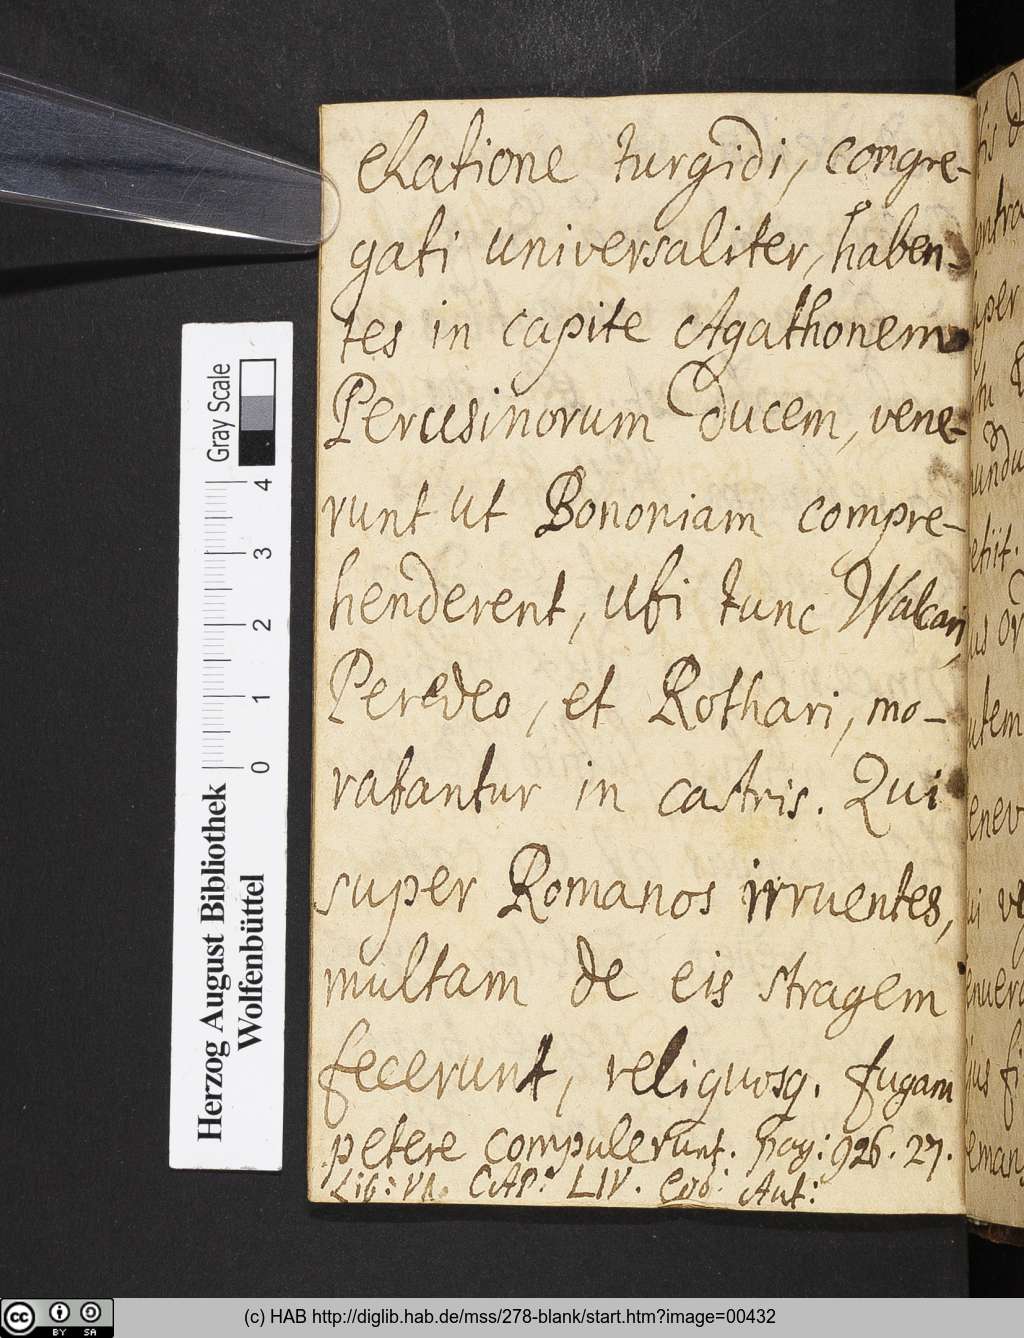 elatione turgidi, congre-
gati universaliter, haben-
tes in capite Agathonem
Perusinorum Ducem, vene-
runt ut Bononiam compre-
henderent, ubi tunc Walcari,
Peredeo, et Rothari, mo-
rabantur in castris. Qui
super Romanos irruentes,
multam de eis stragem
fecerunt, reliquosq. fugam
petere compulerunt. pag: 926. 27.
Lib: VI. CAP: LIV. Eod: Aut:
Gray Scale
0 1 2 3 4
Herzog August Bibliothek
Wolfenbüttel
(c) HAB http://diglib.hab.de/mss/278-blank/start.htm?image=00432
cc BY SA